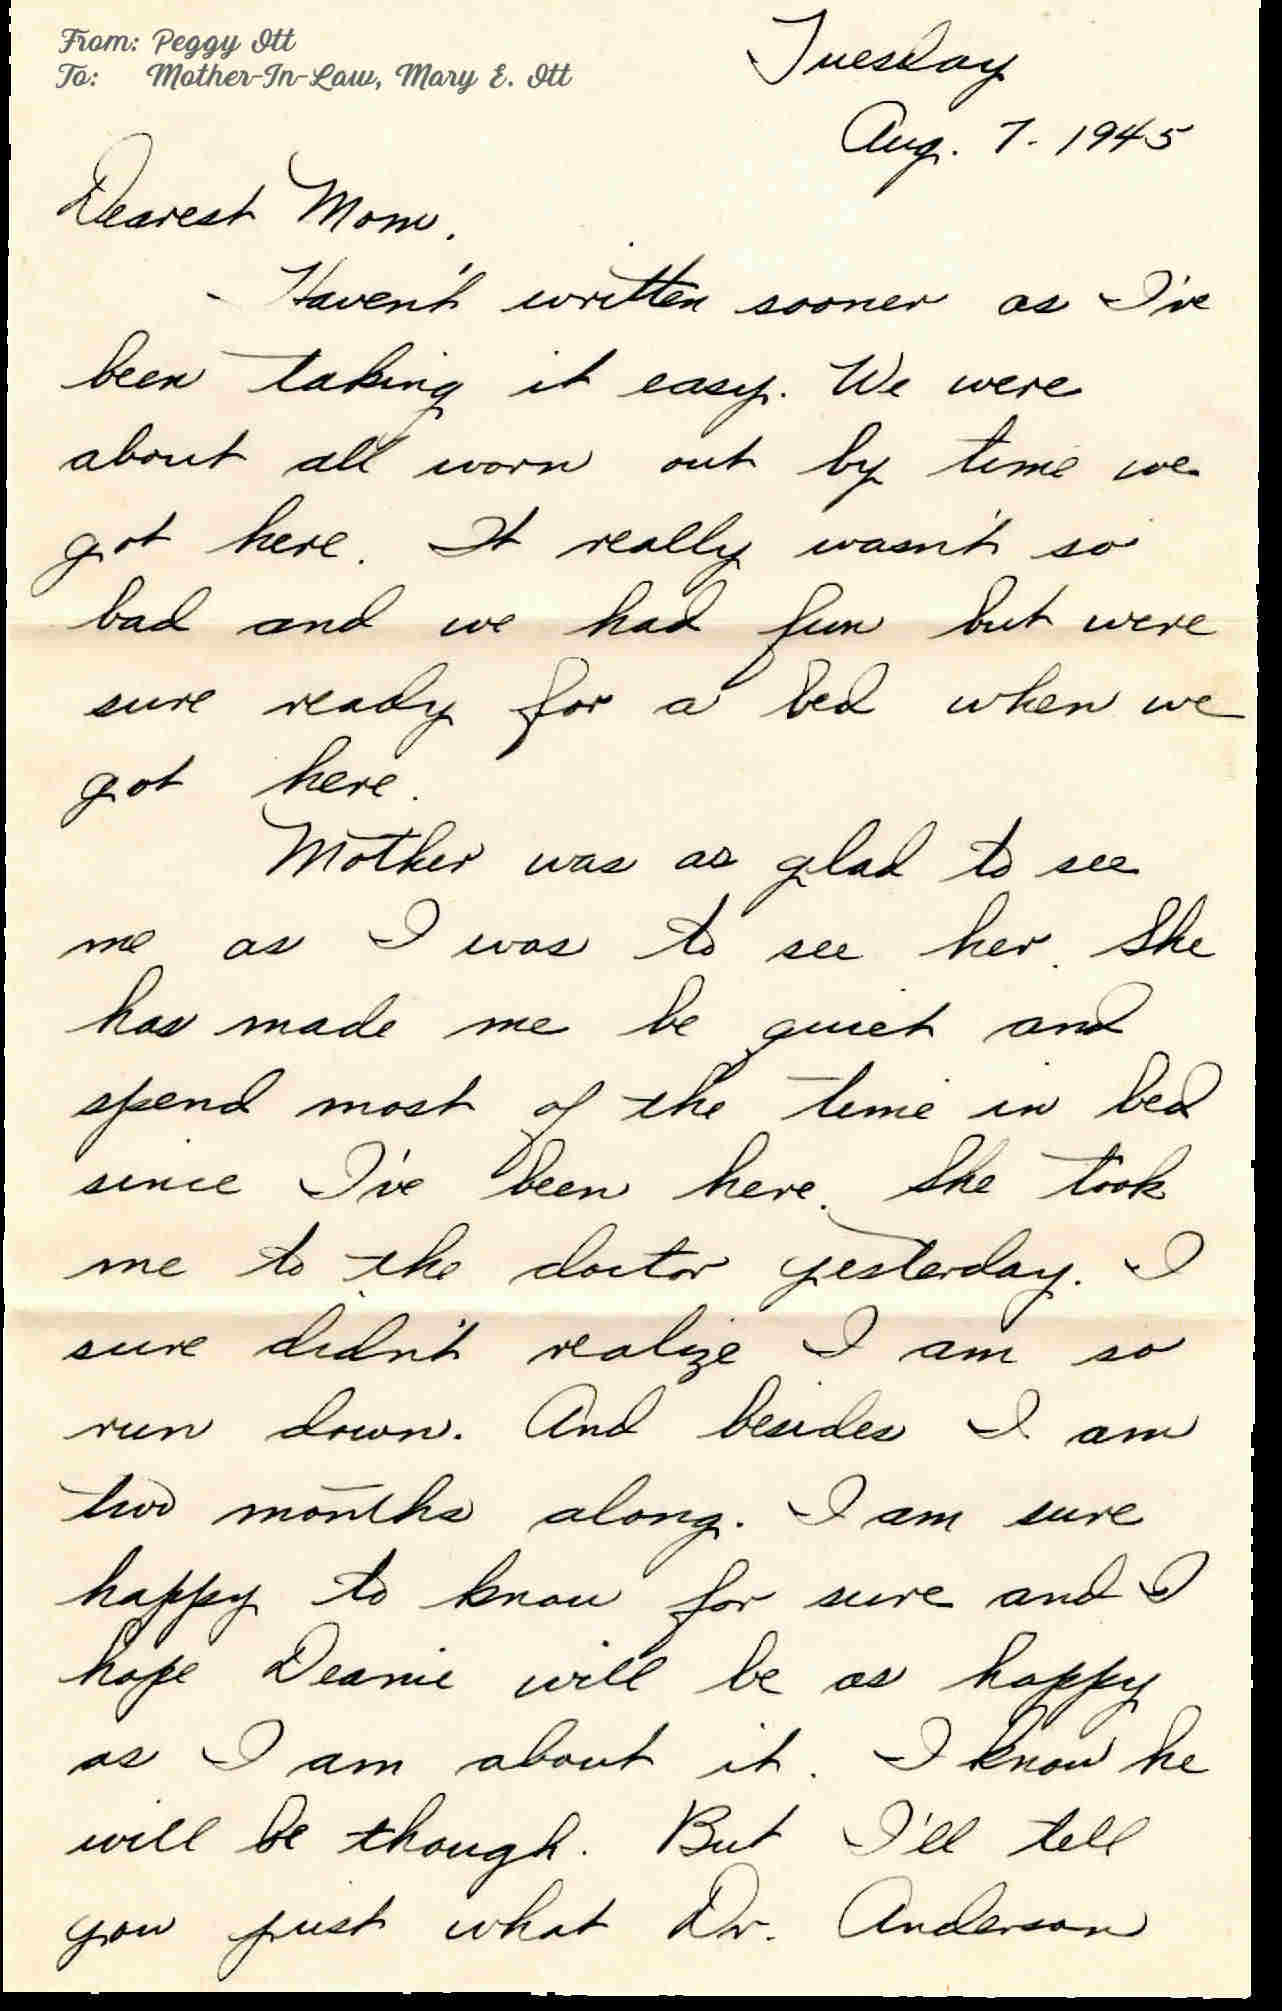 From: Peggy Ott
To: Mother-In-Law, Mary E. Ott
Tuesday
Aug. 7. 1945
Dearest Mom,
Haven't written sooner as I've
been taking it easy. We were
about all worn out by time we
got here. It really wasn't so
bad and we had fun but were
sure ready for a bed when we
got here.
Mother was as glad to see
me as I was to see her. She
has made me be quiet and
spend most of the time in bed
since I've been here. She took
me to the doctor yesterday. I
sure didn't realize I am so
run down. And besides I am
two months along. I am sure
happy to know for sure and I
hope Deanie will be as happy
as I am about it. I know he
will be though. But I'll tell
you just what Dr. Anderson